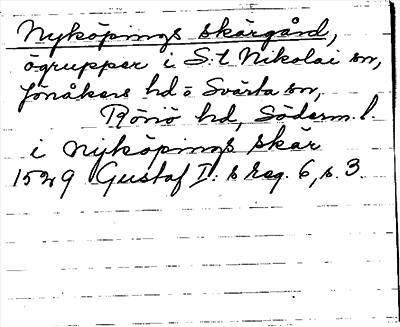 Nyköpings skärgård,
ögrupper i S:t Nikolai sn,
Jönåkers hd o Svärta sn,
Rönö hd, Söderm. l.
i nyköpings skär
1529 Gustaf I:s reg. 6, s. 3.